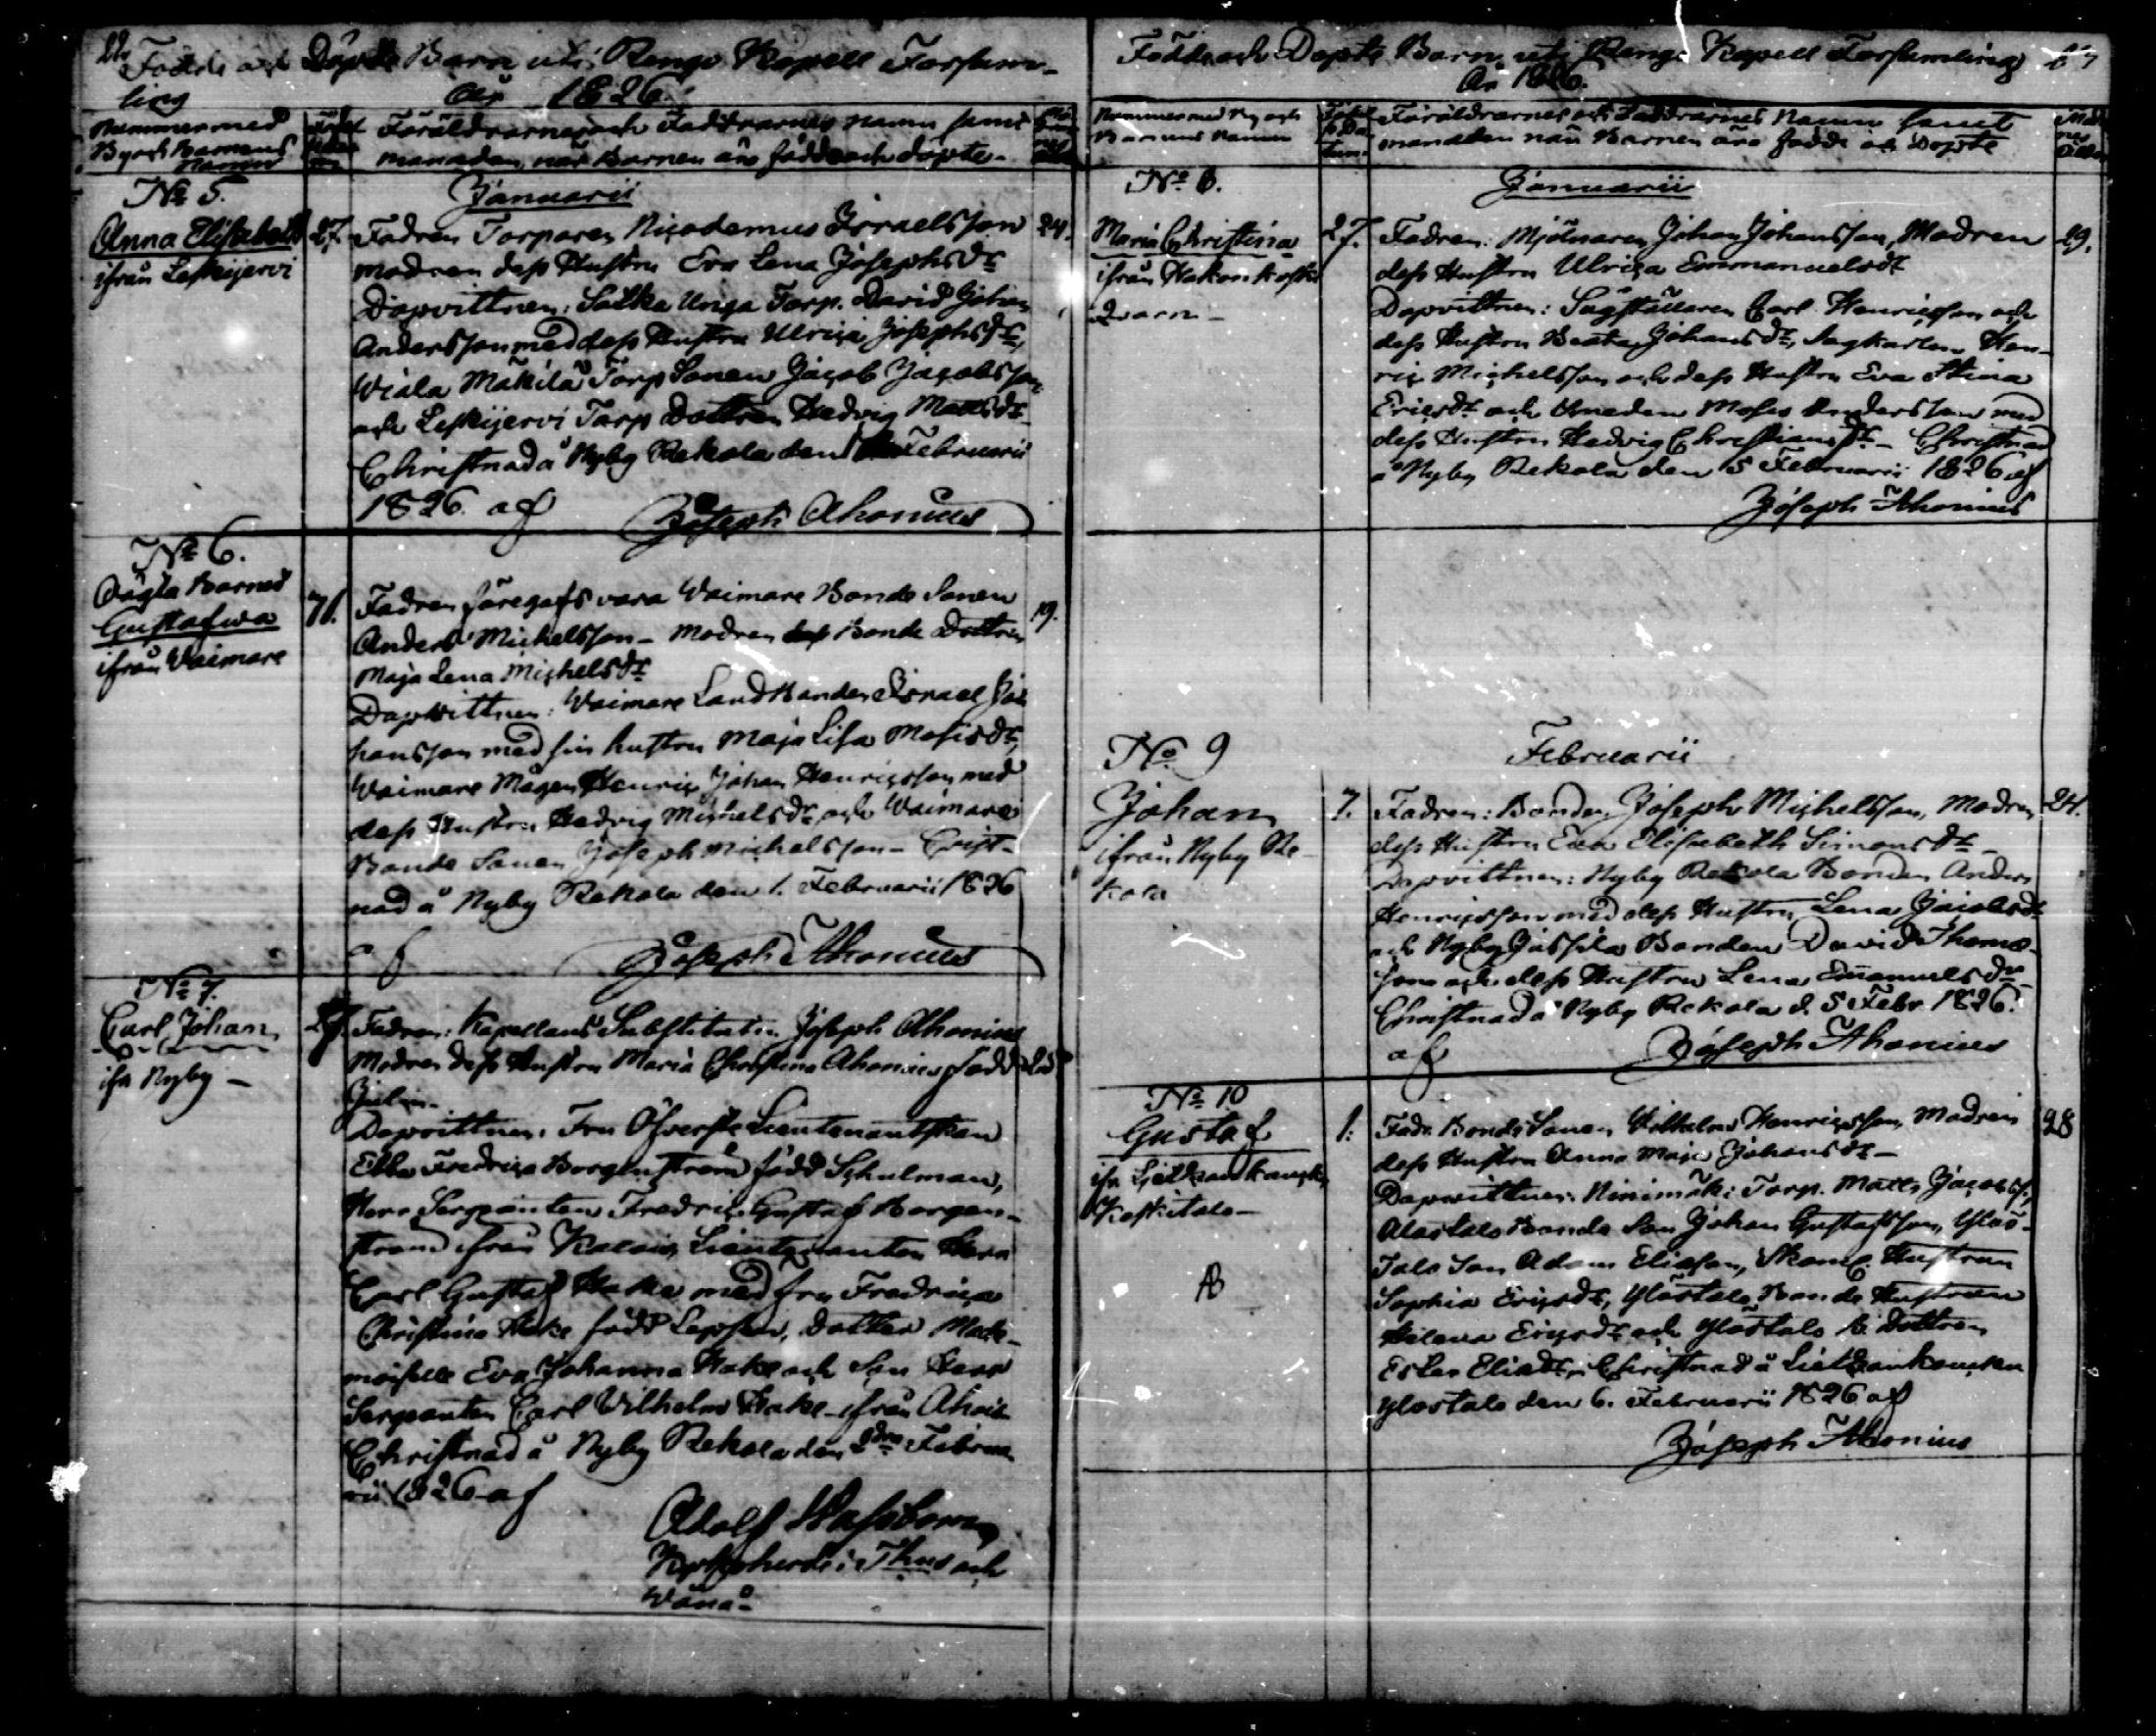 Födde och Döpte Barn uti Rengo Kapell Försam-
ling År 1826.
Nummer med
By och Barnens
Namn
Föräldrarnes och Faddrarnes Namn samt
månaden, när Barnen äro födde och döpte.
No 5. Januarii
Anna Elisabeth
ifrån Leskijervi
27. Fadren Torparen Nicodemus Israelsson 24.
Modren dess Hustru Eva Lena Josephsdr
Dopvittnen: Torp. David Johan
Andersson med dess Hustru Ulrica Josephsdr,
Wiala Mäkilä Torp Sonen Jacob Jacobsson
och Leskijervi Torp Dottren Hedvig Mattsdr
Christnad å Nyby Rekola den Februarii
1826. af Joseph Ahonius
No 6.
Oägta Barnet
Gustafwa
ifrån Waimare
Fadren föregafs vara Waimare Bonde Sonen 19.
Anders Michelsson - Modren Bonde Dottren
Maja Lena Michelsdr
Dopwittnen: Waimare Landbonden Israel Jo-
hansson med sin hustru Maja Lisa Mosisdr,
Waimare Mågen Henric Johan Henricsson med
dess Hustru Hedvig Michelsdr och Waimare
Bonde Sonen Joseph Michelsson - Crist-
nad å Nyby Rekola den 1. Februarii 1826
af Joseph Ahonius
No 7.
Carl Johan
ifr Nyby -
Fadren: Kapellans Substituten Joseph Ahonius
Modren dess Hustru Maria Christina Ahonius född
Julin.
Dopvittnen: Fru Öfverste Lieutenantskan
Ebba Fredrica Borgenström född Schulman,
Herr Sergeanten Fredric Gustaf Borgen-
ström ifrån Kalais, Lieutenanten Herr
Carl Gustaf Hake med fru Fredrica
Christina Hake född Lepsen, Dotter Made-
moiselle Eva Johanna Hake och Son Herr
Sergeanten Carl Vilhelm Hake ifrån Ahois
Christnad å Nyby Rekola den 2dra Februa-
rii 1826 af
Adolf
Kyrkoherde i och
Wånå.
Födde och Döpte Barn uti Rengo Kapell Församling
År 1826.
Nummer med By och
Barnens Namn
Föräldrarnes och Faddrarnes Namn samt
månaden när Barnen äro födde och Döpte
No 8. Januarii
Maria Christina
ifrån Hakonkoski
Qvarn -
27. Fadren: Mjölnaren Johan Johansson, Modren 29.
dess Hustru Ulrica Emmanuelsdr
Dopvittnen: Sågställaren Carl Henricsson och
dess Hustru Beata Johansdr, Sagkarlen Hen-
ric Michelsson och dess Hustru Eva Stina
Ericsdr och Smeden Moses Andersson med
dess Hustru Hedvig Christiansdr - Christnad
å Nyby Rekola den 5 Februarii 1826 af
Joseph Ahonius
No 9 Februarii
Johan
ifrån Nyby Re-
kola
7. Fadren: Bonden Joseph Michelsson, Modren 24.
dess Hustru Eva Elisabeth Simonsdr -
Dopvittnen: Nyby Rekola Bonden Anders
Henricsson med dess Hustru Lena Jacobsdr
och Nyby Jussila Bonden David Thomas-
son och dess Hustru Lena Emanuelsdr
Christnad å Nyby Rekola d. 5 Febr. 1826.
af Joseph Ahonius
No 10
Gustaf
ifr Lietzankauski
Keskitalo -
1. Fadr. Bonde Sonen Wilhelm Henricsson, Modren 28
dess Hustru Anna Maja Johansdr -
Dopvittnen: Ninimäki Torp. Matts Jacobss.,
Alastalo Bonde Son Johan Gustafsson, Ylös-
talo Son Adam Eliasson, Skom. Hustrun
Sophia Ericsdr, Ylöstalo Bonde Hustrun
Helena Ericsdr och Ylöstalo B. Dottren
Ester Eliasdr. Christnad å Lietzankauken
Ylöstalo den 6. Februarii 1826 af
Joseph Ahonius